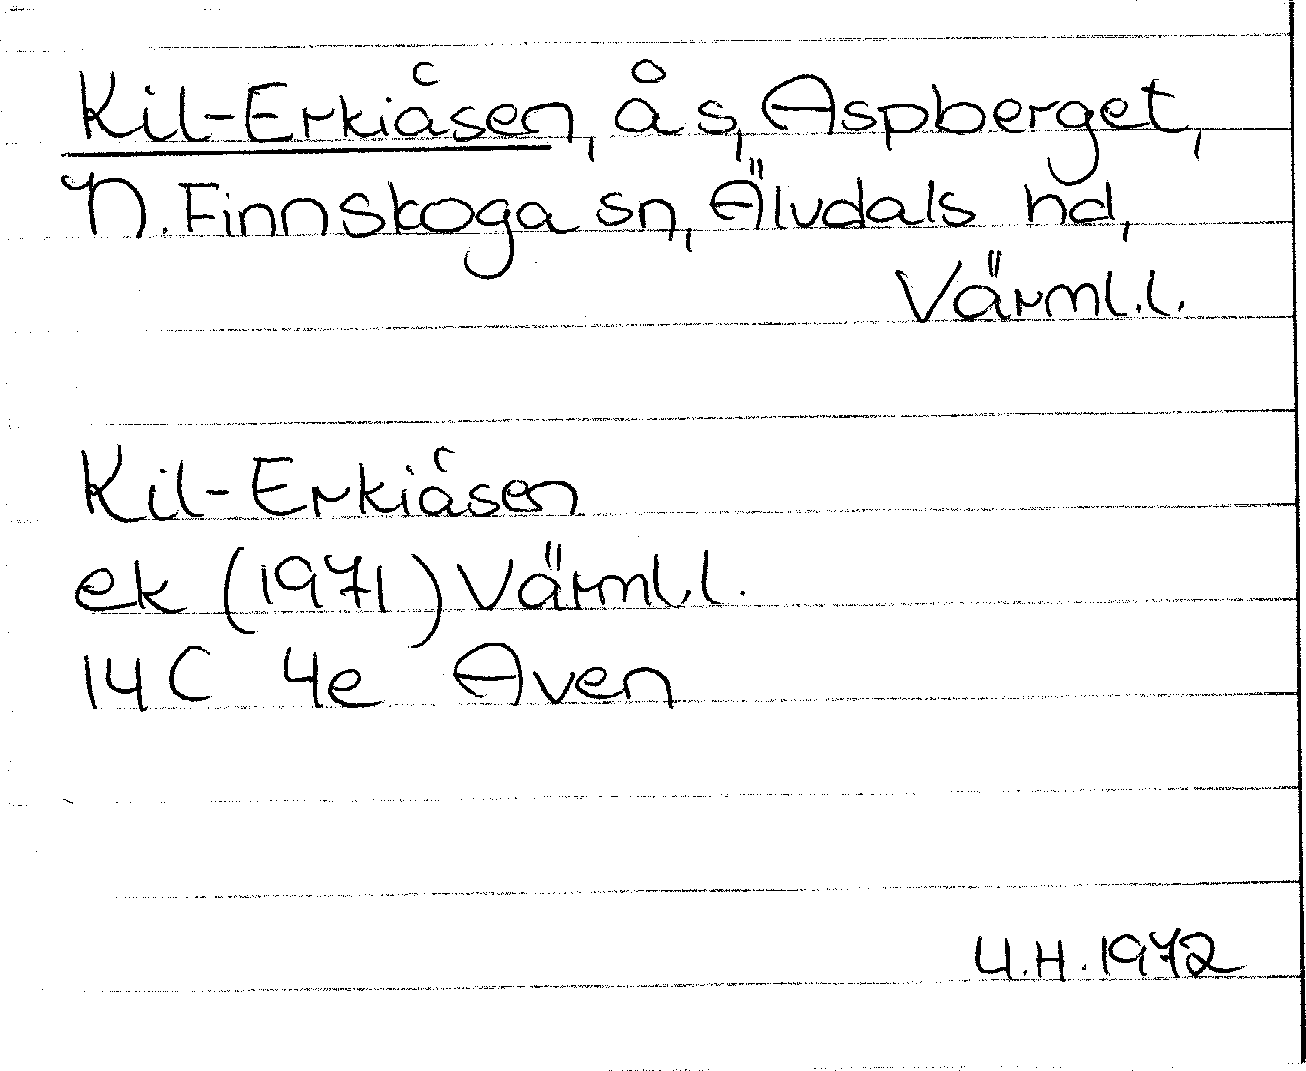 Kil-Erkiåsen, ås, Aspberget,
N. Finnskoga sn, Älvdals hd,
Värml.l.
Kil-Erkiåsen
ek (1971) Värml.l.
14C 4e Aven
U.H. 1972